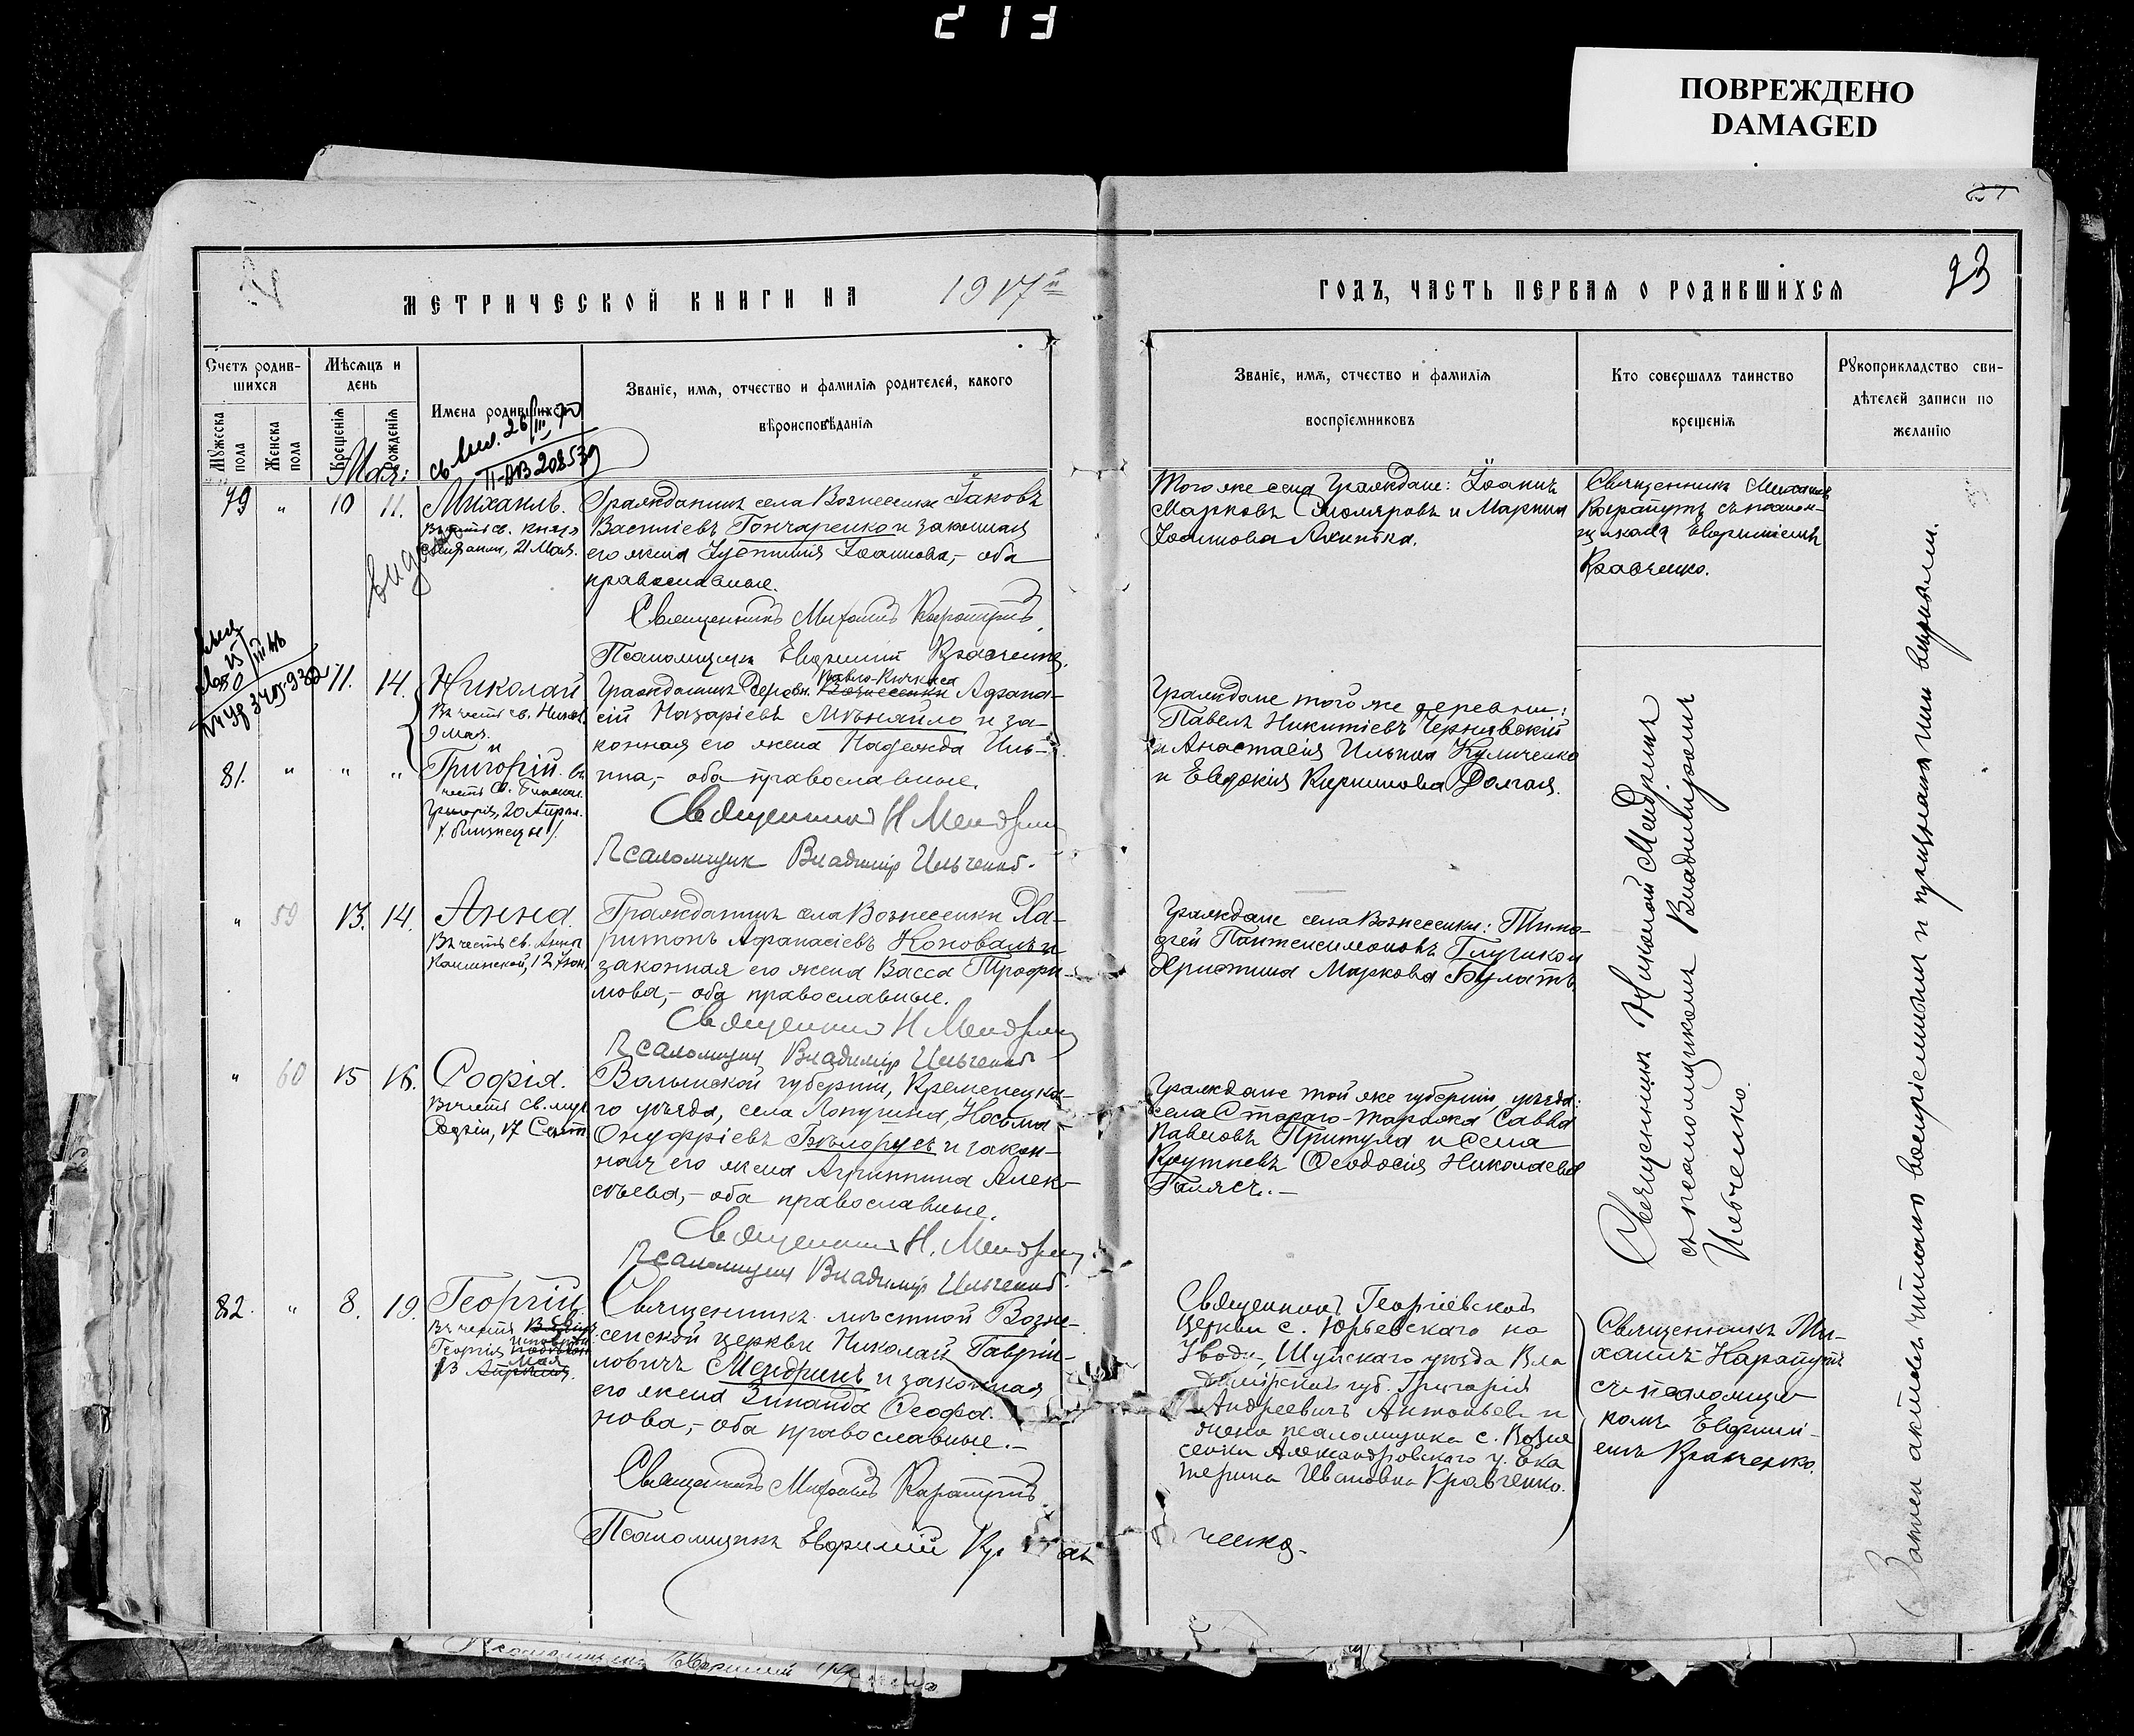 213
ПОВРЕЖДЕНО
DAMAGED
МЕТРИЧЕСКОЙ КНИГИ НА 1917й
ГОДЪ, ЧАСТЬ ПЕРВАЯ О РОДИВШИХСЯ
23
Счетъ родив-
шихся
Мужеска пола
Женска пола
Мѣсяцъ и
день
Крещенія
Рожденія
Имена родившихся
Званіе, имя, отчество и фамилія родителей, какого
вѣроисповѣданія
Званіе, имя, отчество и фамилія
воспріемниковъ
Кто совершалъ таинство
крещенія
Рукоприкладство сви-
дѣтелей записи по
желанію
Мая:
II-АВ 208539
79 " 10 11.
Михаилъ.
Въ честь св. князя
21 Мая.
Гражданинъ села Вознесенки Іаковъ
Василіевъ Гончаренко и законная
его жена Іустинія Іоаннова,- оба
православные.
Священникъ Михаилъ
Псаломщикъ Евфимій Кравченко.
Того же села граждане: Іоаннъ
Марковъ Столяровъ и Марина
Іоаннова
Священникъ Михаилъ
съ псалом-
щикомъ Евфиміемъ
Кравченко.
11. 14.
Николай
Въ честь св. Никол.
9 мая.
и
Гражданинъ деревн. Павло-Кичкаса Вознесенки Афана-
сій Назаріевъ Мѣняйло и за-
конная его жена Надежда Иль-
ина,- оба православные.
81. " " "
Григорій. въ
честь св.
Григорія, 20 Апрѣл.
(близнецы).
Священникъ Н Мендринъ
Псаломщик Владимір Ильченко.
Граждане того же деревни:
Павелъ Никитіевъ Чернявскій
и Анастасія Ильина Куличенко
и Евдокія Кириллова Долгая.
Священникъ Николай Мендринъ
съ псаломщикомъ Владиміромъ
Ильченко.
" 59 13. 14.
Анна.
Въ честь св. Анны
Кашинской, 12 Іюн.
Гражданинъ села Вознесенки Ха-
ритонъ Афанасіевъ Коновалъ и
законная его жена Васса Трофи-
мова,- оба православные.
Священникъ Н Мендринъ
Псаломщик Владимір Ильченко
Граждане села Вознесенки: Тимо-
фей Пантелеимоновъ Глушко и
Христина Маркова Булатъ.
" 60 15 16.
Софія.
Въ честь св. муч.
Софіи, 17 Сент.
Волынской губерніи, Кременецка-
го уѣзда, села Лопушна, Косьма
Онуфріевъ Бѣлорусъ и закон-
ная его жена Агриппина Алек-
сѣева,- оба православные.
Священникъ Н. Мендринъ
Псаломщик Владимір Ильченко.
Граждане той же губерніи, уѣзда:
села Стараго-Таража Савва
Павловъ Притула и села
Крутневъ Феодосія Николаева
Галясъ.-
82. " 8. 19.
Георгій.
Въ честь
Георгія Исповѣдн.
13 Мая Апрѣля.
Священникъ мѣстной Возне-
сенской церкви Николай Гаврии-
ловичъ Мендринъ и законная
его жена Зинаида Феофа-
нова,- оба православные.-
Священникъ Михаилъ
Псаломщикъ Евфимій
ченко.
Священникъ Георгіевской
Церкви с. Юрьевскаго на
Уводи, Шуйскаго уѣзда Вла
димірской губ. Григорій
Андреевичъ Антоньев и
жена псаломщика с. Возне
сенки Александровскаго у. Ека
терина Ивановна Кравченко.
Священникъ Ми-
хаилъ
съ псаломщи-
комъ Евфимі-
емъ Кравченко.
актов читали воспріемники и признали ими вѣрными.